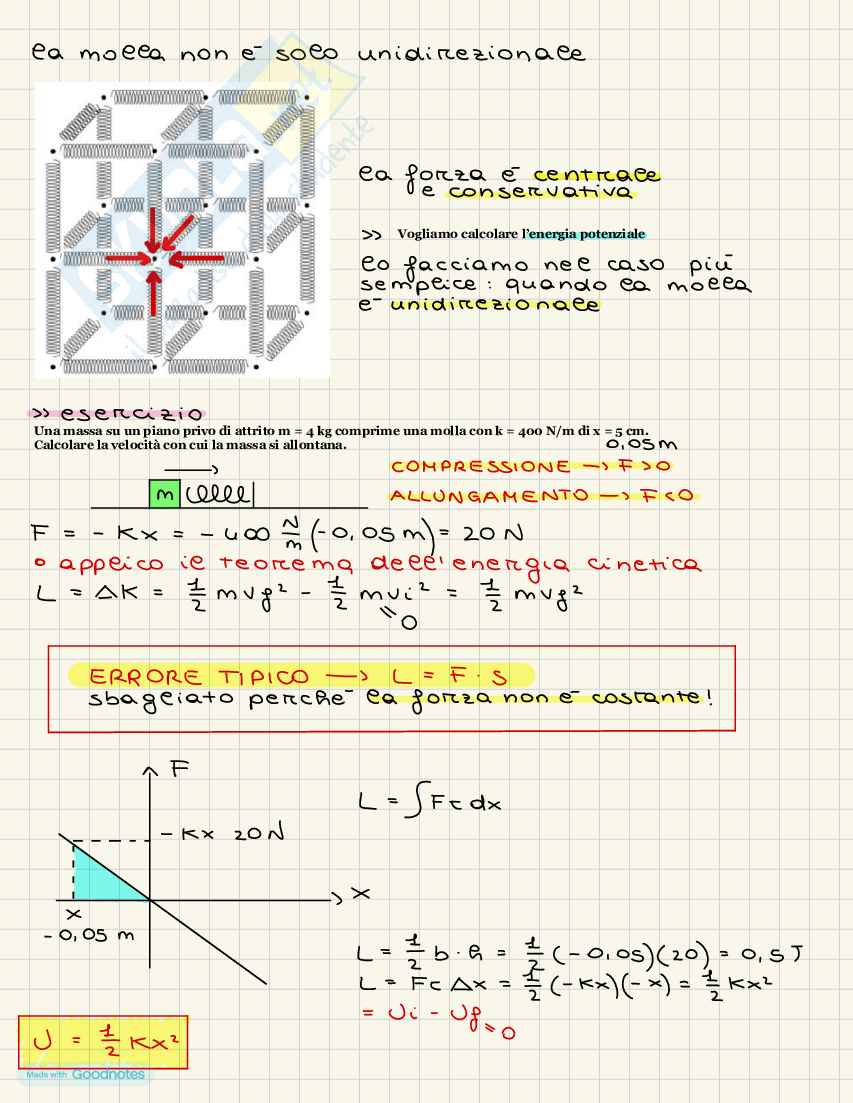 la molla non è solo unidirezionale
la forza è centrale
e conservativa
>> Vogliamo calcolare l'energia potenziale
lo facciamo nel caso più
semplice: quando la molla
è unidirezionale
>> esercizio
Una massa su un piano privo di attrito m = 4 kg comprime una molla con k = 400 N/m di x = 5 cm.
0,05 m
Calcolare la velocità con cui la massa si allontana.
COMPRESSIONE → F>0
m
ALLUNGAMENTO → F<0
F = - Kx = - 400 N/m (-0,05 m) = 20 N
• applico il teorema dell'energia cinetica
L = ΔK = 1/2 mvf² - 1/2 mvi² = 1/2 mvf²
= 0
ERRORE TIPICO → L = F · S
sbagliato perché la forza non è costante!
F
L = ∫ Fc dx
- Kx 20N
x
x
- 0,05 m
L = 1/2 b · h = 1/2 (-0,05)(20) = 0,5 J
L = Fc Δx = 1/2 (-Kx)(-x) = 1/2 Kx²
= Ui - Uf = 0
U = 1/2 Kx²
Made with Goodnotes